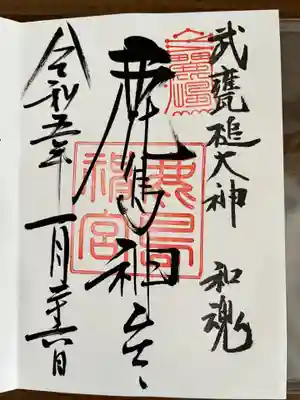 武甕槌大神 和魂
鹿島神宮
鹿島神宮
令和五年 一月二十六日